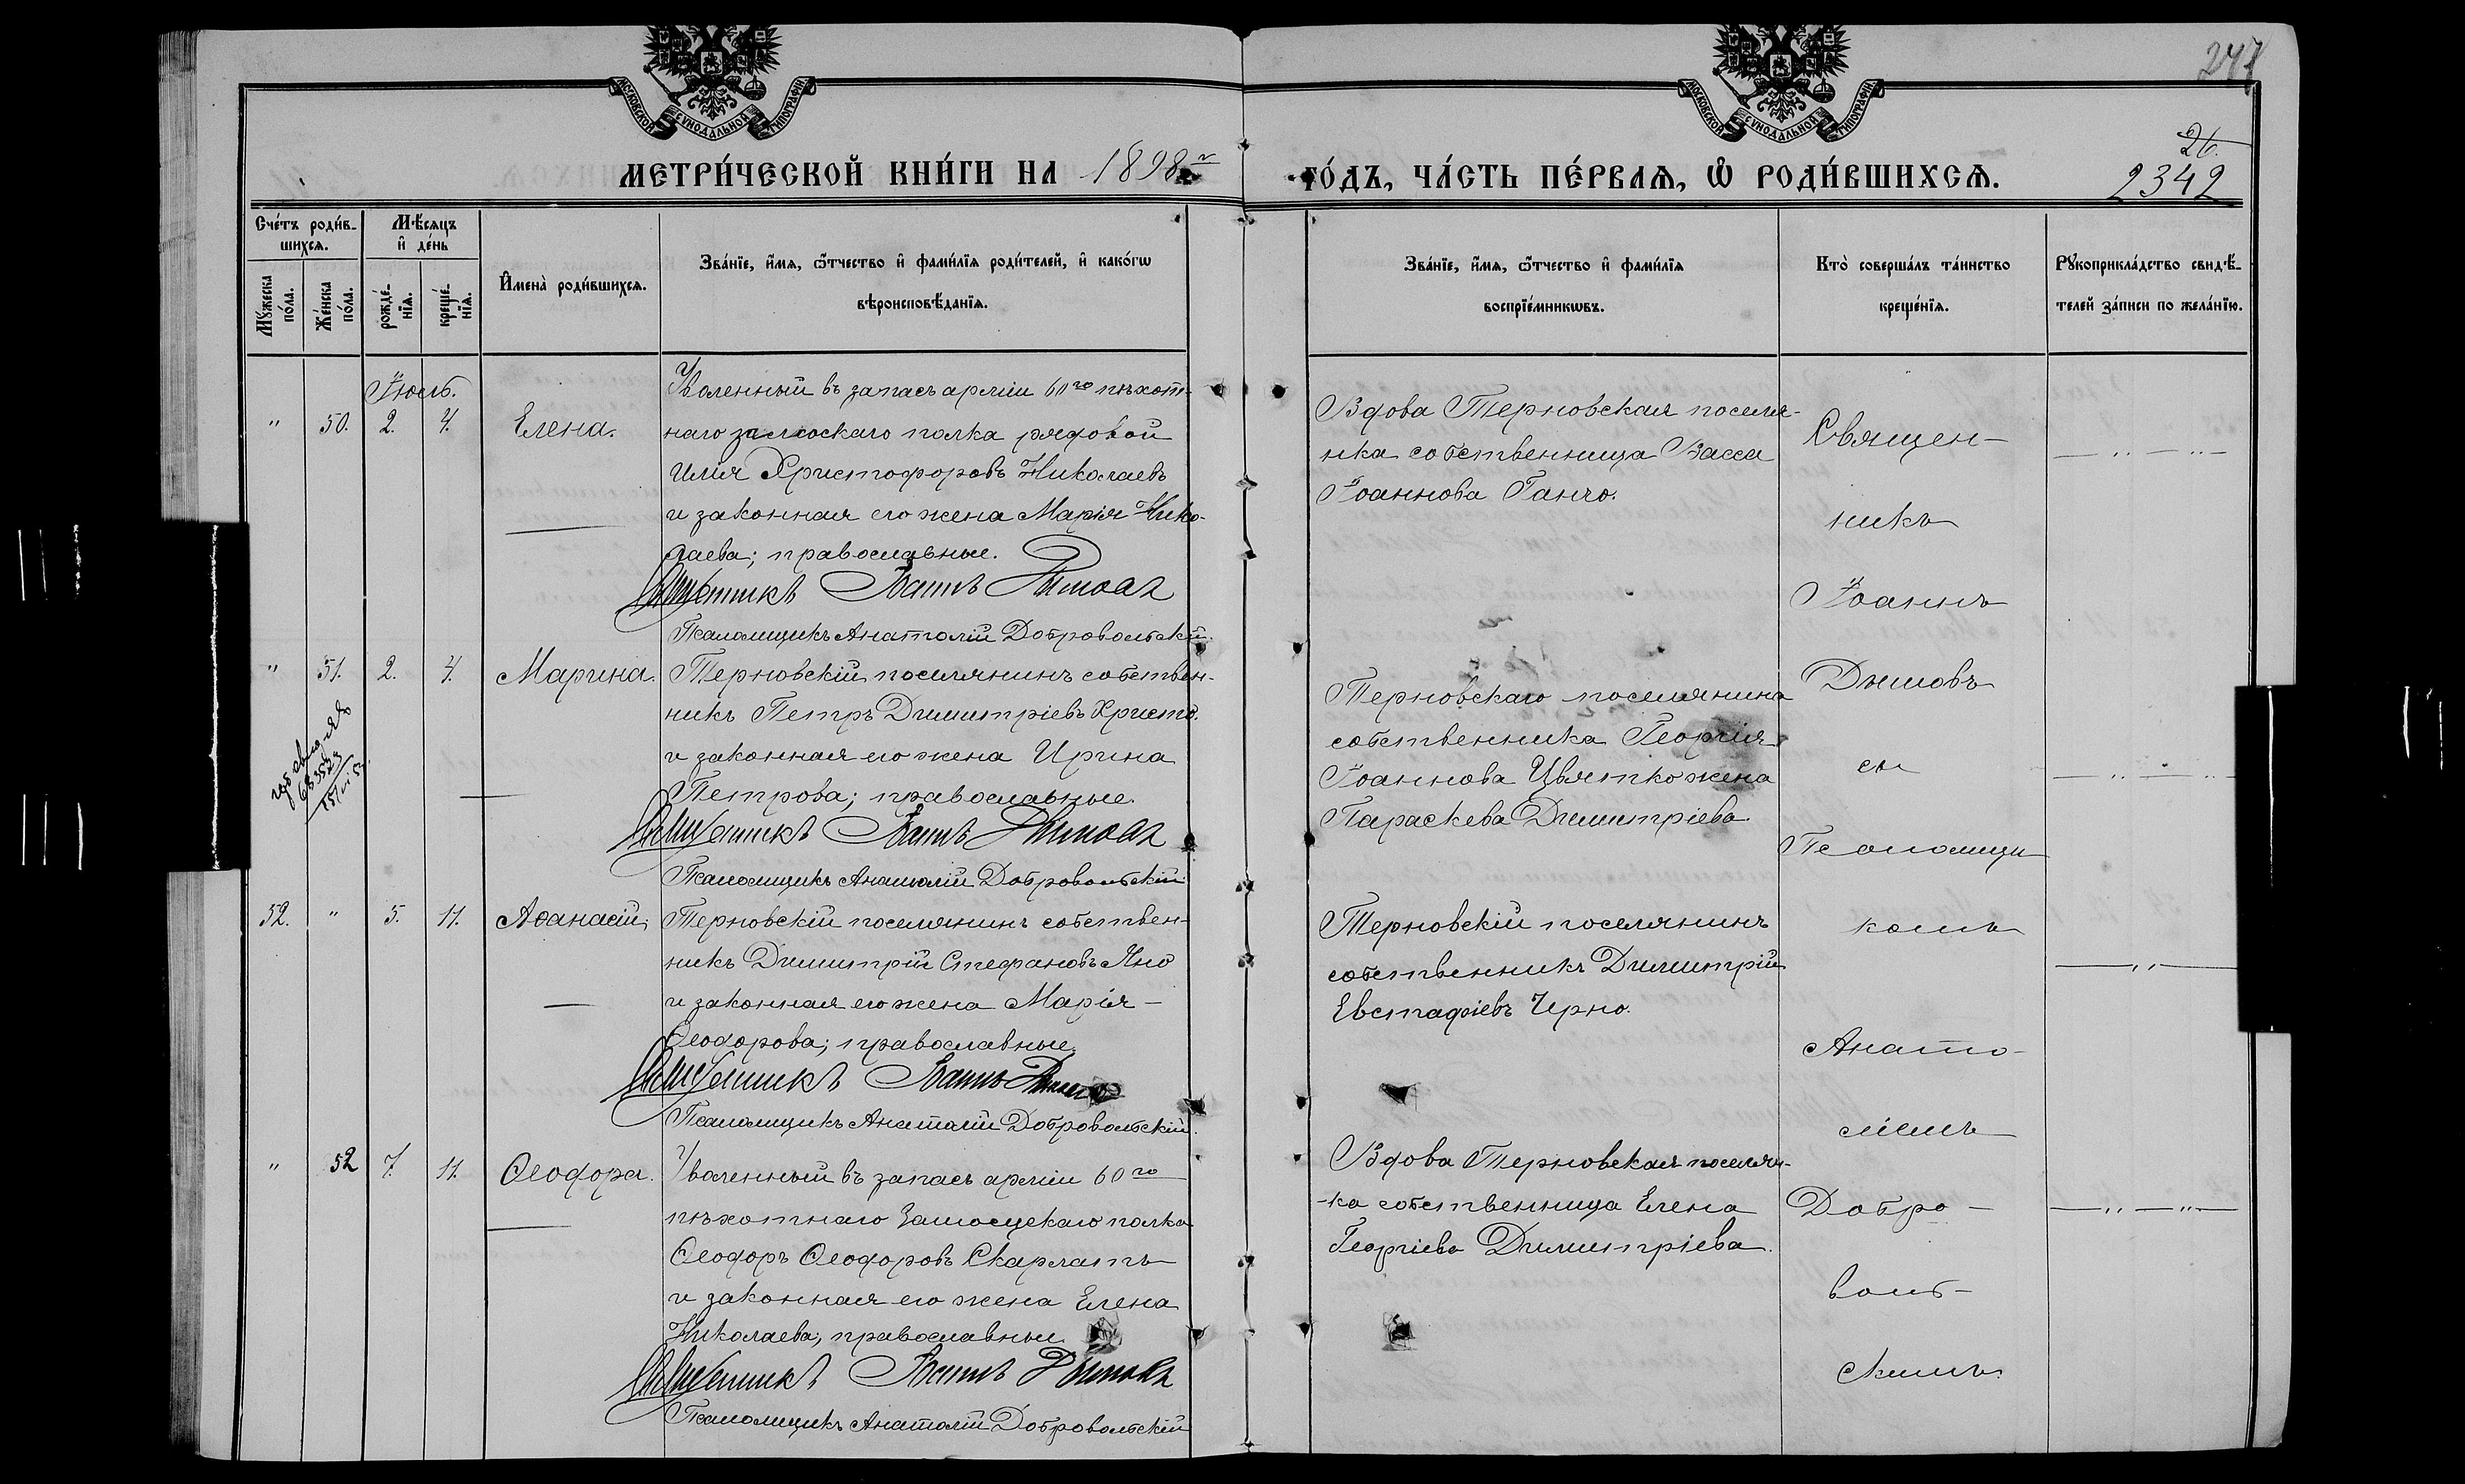 МОСКОВСКОЙ СѴНОДАЛЬНОЙ ТИПОГРАФІИ
МОСКОВСКОЙ СѴНОДАЛЬНОЙ ТИПОГРАФІИ
247
26.
МЕТРИ́ЧЕСКОЙ КНИ́ГИ НА 1898 г
ГО́ДЪ, ЧА́СТЬ ПЕ́РВАѦ, Ѡ҆ РОДИ́ВШИХСѦ.
2342
Сче́тъ роди́в-
шихсѧ.
Мѣ́сѧцъ
и҆ де́нь
Мꙋ́жеска
по́ла.
Же́нска
по́ла.
рожде́-
нїѧ.
креще́-
нїѧ.
И҆мена̀ роди́вшихсѧ.
Зва́нїе, и҆́мѧ, ѻ҆́тчество и҆ фами́лїѧ роди́телей, и҆ како́гѡ
вѣроисповѣ́данїѧ.
Зва́нїе, и҆́мѧ, ѻ҆́тчество и҆ фами́лїѧ
воспрїе́мникѡвъ.
Кто̀ соверша́лъ та́инство
креще́нїѧ.
Рꙋкоприкла́дство свидѣ́-
телей за́писи по жела́нїю.
Іюль.
" 50. 2. 4. Елена.
Уволенный въ запасъ арміи 60го пѣхот-
наго полка рядовой
Илія Христофоровъ Николаевъ
и законная его жена Марія Нико-
лаева; православные.
Священникъ Іоаннъ Дымовъ
Псаломщикъ Анатолій Добровольскій.
Вдова Терновская поселя-
нка собственница Васса
Іоаннова Ганчо.
" 51. 2. 4. Марина.
Терновскій поселянинъ собствен-
никъ Петръ Димитріевъ Христо.
и законная его жена Ирина
Петрова; православные.
Священникъ Іоаннъ Дымовъ
Псаломщикъ Анатолій Добровольскій
Терновскаго поселянина
собственника Георгія
Іоаннова Цвятко жена
Параскева Димитріева
52. " 5. 11. Аѳанасій.
Терновскій поселянинъ собствен-
никъ Димитрій Стефановъ Яно
и законная его жена Марія –
Ѳеодорова; православные.
Священникъ Іоаннъ Дымовъ
Псаломщикъ Анатолій Добровольскій.
Терновскій поселянинъ
собственникъ Димитрій
Евстафіевъ Черно.
" 52 7. 11. Ѳеодора.
Уволенный въ запасъ арміи 60го
пѣхотнаго Замосцскаго полка
Ѳеодоръ Ѳеодоровъ Скарлатъ
и законная его жена Елена
Николаева, православные
Священникъ Іоаннъ Дымовъ
Псаломщикъ Анатолій Добровольскій
Вдова Терновская поселян-
-ка собственница Елена
Георгіева Димитріева.
Священ-
никъ
Іоаннъ
Дымовъ
съ
Псаломщи
комъ
Анато-
ліемъ
Добро-
воль-
скимъ.